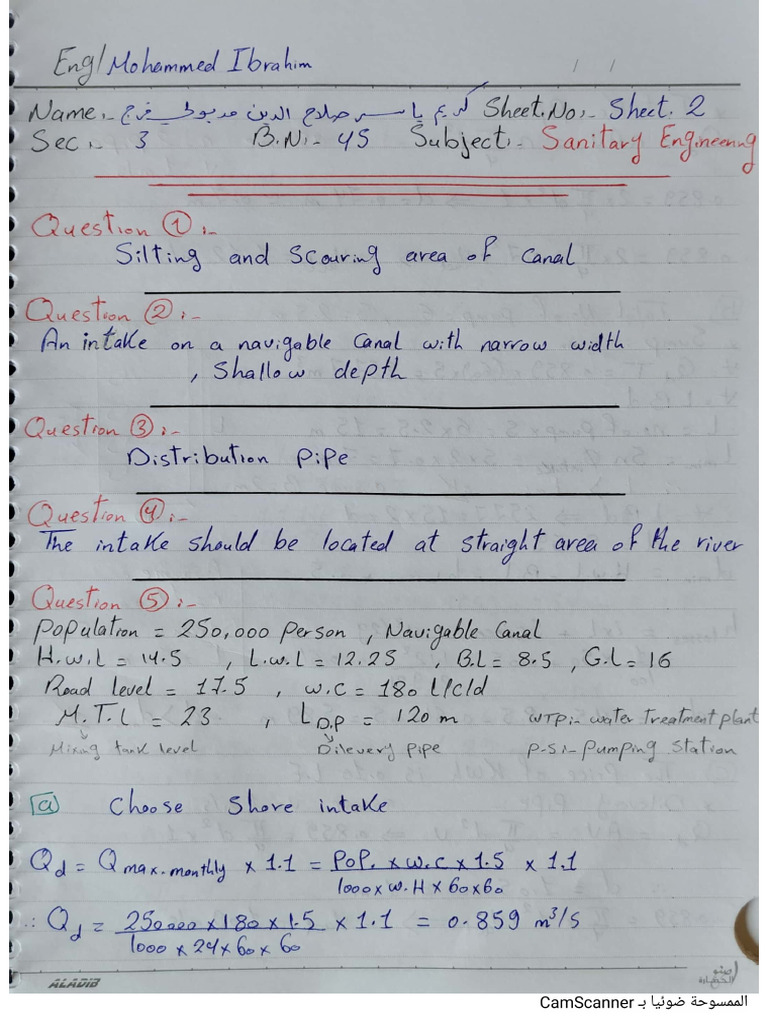 Eng/ Mohammed Ibrahim
/ /
Name:- كريم ياسر صلاح الدين مدبولي فرج Sheet.No:- Sheet. 2
Sec:- 3 B.N:- 45 Subject:- Sanitary Engineering
Question ① :-
Silting and scouring area of canal
Question ② :-
An intake on a navigable canal with narrow width
, Shallow depth
Question ③ :-
Distribution pipe
Question ④ :-
The intake should be located at straight area of the river
Question ⑤ :-
Population = 250,000 Person , Navigable Canal
H.w.L = 14.5 , L.w.L = 12.25 , B.L = 8.5 , G.L = 16
Road level = 17.5 , w.c = 180 L/c/d
M.T.L = 23 , L D.P = 120 m WTP:- water treatment plant
Mixing tank level Dilevery pipe P.S:- Pumping station
a Choose Shore intake
Qd = Q max.monthly × 1.1 = POP. × w.c × 1.5 / 1000 × w.H × 60 × 60 × 1.1
∴ Qd = 250000 × 180 × 1.5 / 1000 × 24 × 60 × 60 × 1.1 = 0.859 m³/s
ALADIB
الممسوحة ضوئيا بـ CamScanner